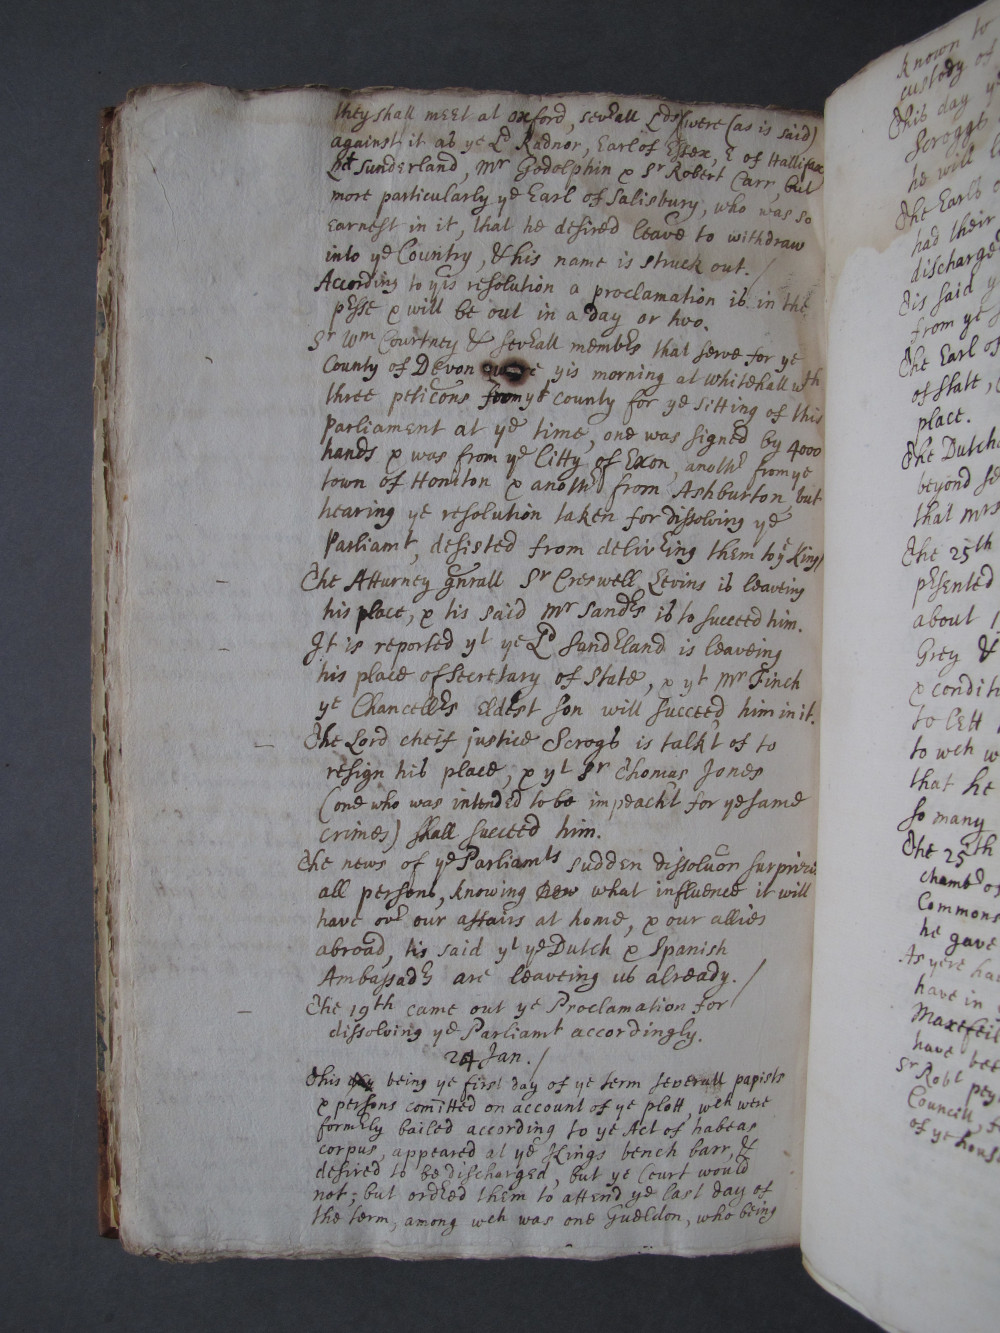 they shall meet at oxford, sevēall Lds (were (as is said)
against it as ye Ld Radnor, Earl of Essex, E of Hallifax
Ld Sunderland, Mr Godolphin & Sr Robert Carr, but
more particularly ye Earl of Salisbury, who was so
earnest in it, that he desired leave to withdraw
into ye Country, & his name is struck out. /
According to yis resolution a proclamation is in the
pēsse & will be out in a day or two.
Sr Wm Courtney & sevēall membēs that serve for ye
County of Devon were yis morning at Whitehall wth
three peticons from ye county for ye sitting of this
Parliament at ye time, one was signed by 4000
hands & was from ye Citty of Exon, anothē from ye
town of Honiton & anothē from Ashburton but
hearing ye resolution taken for dissolving ye
Parliamt, desisted from delivēing them to ye King /
The Atturney gnrall Sr Creswell Levins is leaveing
his place, & tis said Mr Sandēs is to succeed him.
It is reported yt ye Ld Sundēland is leaveing
his place of Secretary of State, & yt Mr Finch
ye Chancellēs Eldest son will succeed him in it.
The Lord cheif justice Scrogs is talkt of to
resign his place, & yt Sr Thomas Jones
(one who was intended to be impeacht for ye same
crimes) shall succeed him.
The news of ye Parliamts sudden dissoluon surprised
all persons, knowing new what influence it will
have ovē our affairs at home, & our allies
abroad, tis said yt ye Dutch & Spanish
Ambassadēs are leaveing us already. /
The 19th came out ye Proclamation for
dissolving ye Parliamt accordingly.
24 Jan. /
This day being ye first day of ye term severall papists
& persons comitted on account of ye plott, wch were
formēly bailed according to ye Act of habeas
corpus, appeared at ye Kings bench barr, &
desired to be discharged, but ye Court would
not; but ordēed them to attend ye last day of
the term, among wch was one Gueldon, who being
known to
custody of
This day
Scroggs
he will
The Earls
had their
discharged
Tis said
from ye
The Earl of
of State,
place.
The Dutch
beyond
that Mrs
The 25th
pēsented
about
Grey &
& condit
to lett
to wch w
that he
so many
The 25th
chambē of
Commons
he gave
As yere ha
have in
Maxefeil
have bee
Sr Robt pey
Councill,
of ye hous